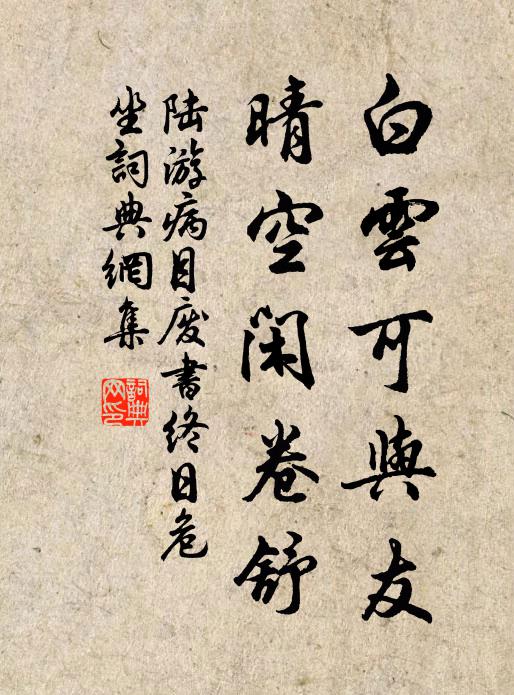 白雲可與友
晴空閑卷舒
陆游病目废書终日危
坐詞典網集
詞典
网印